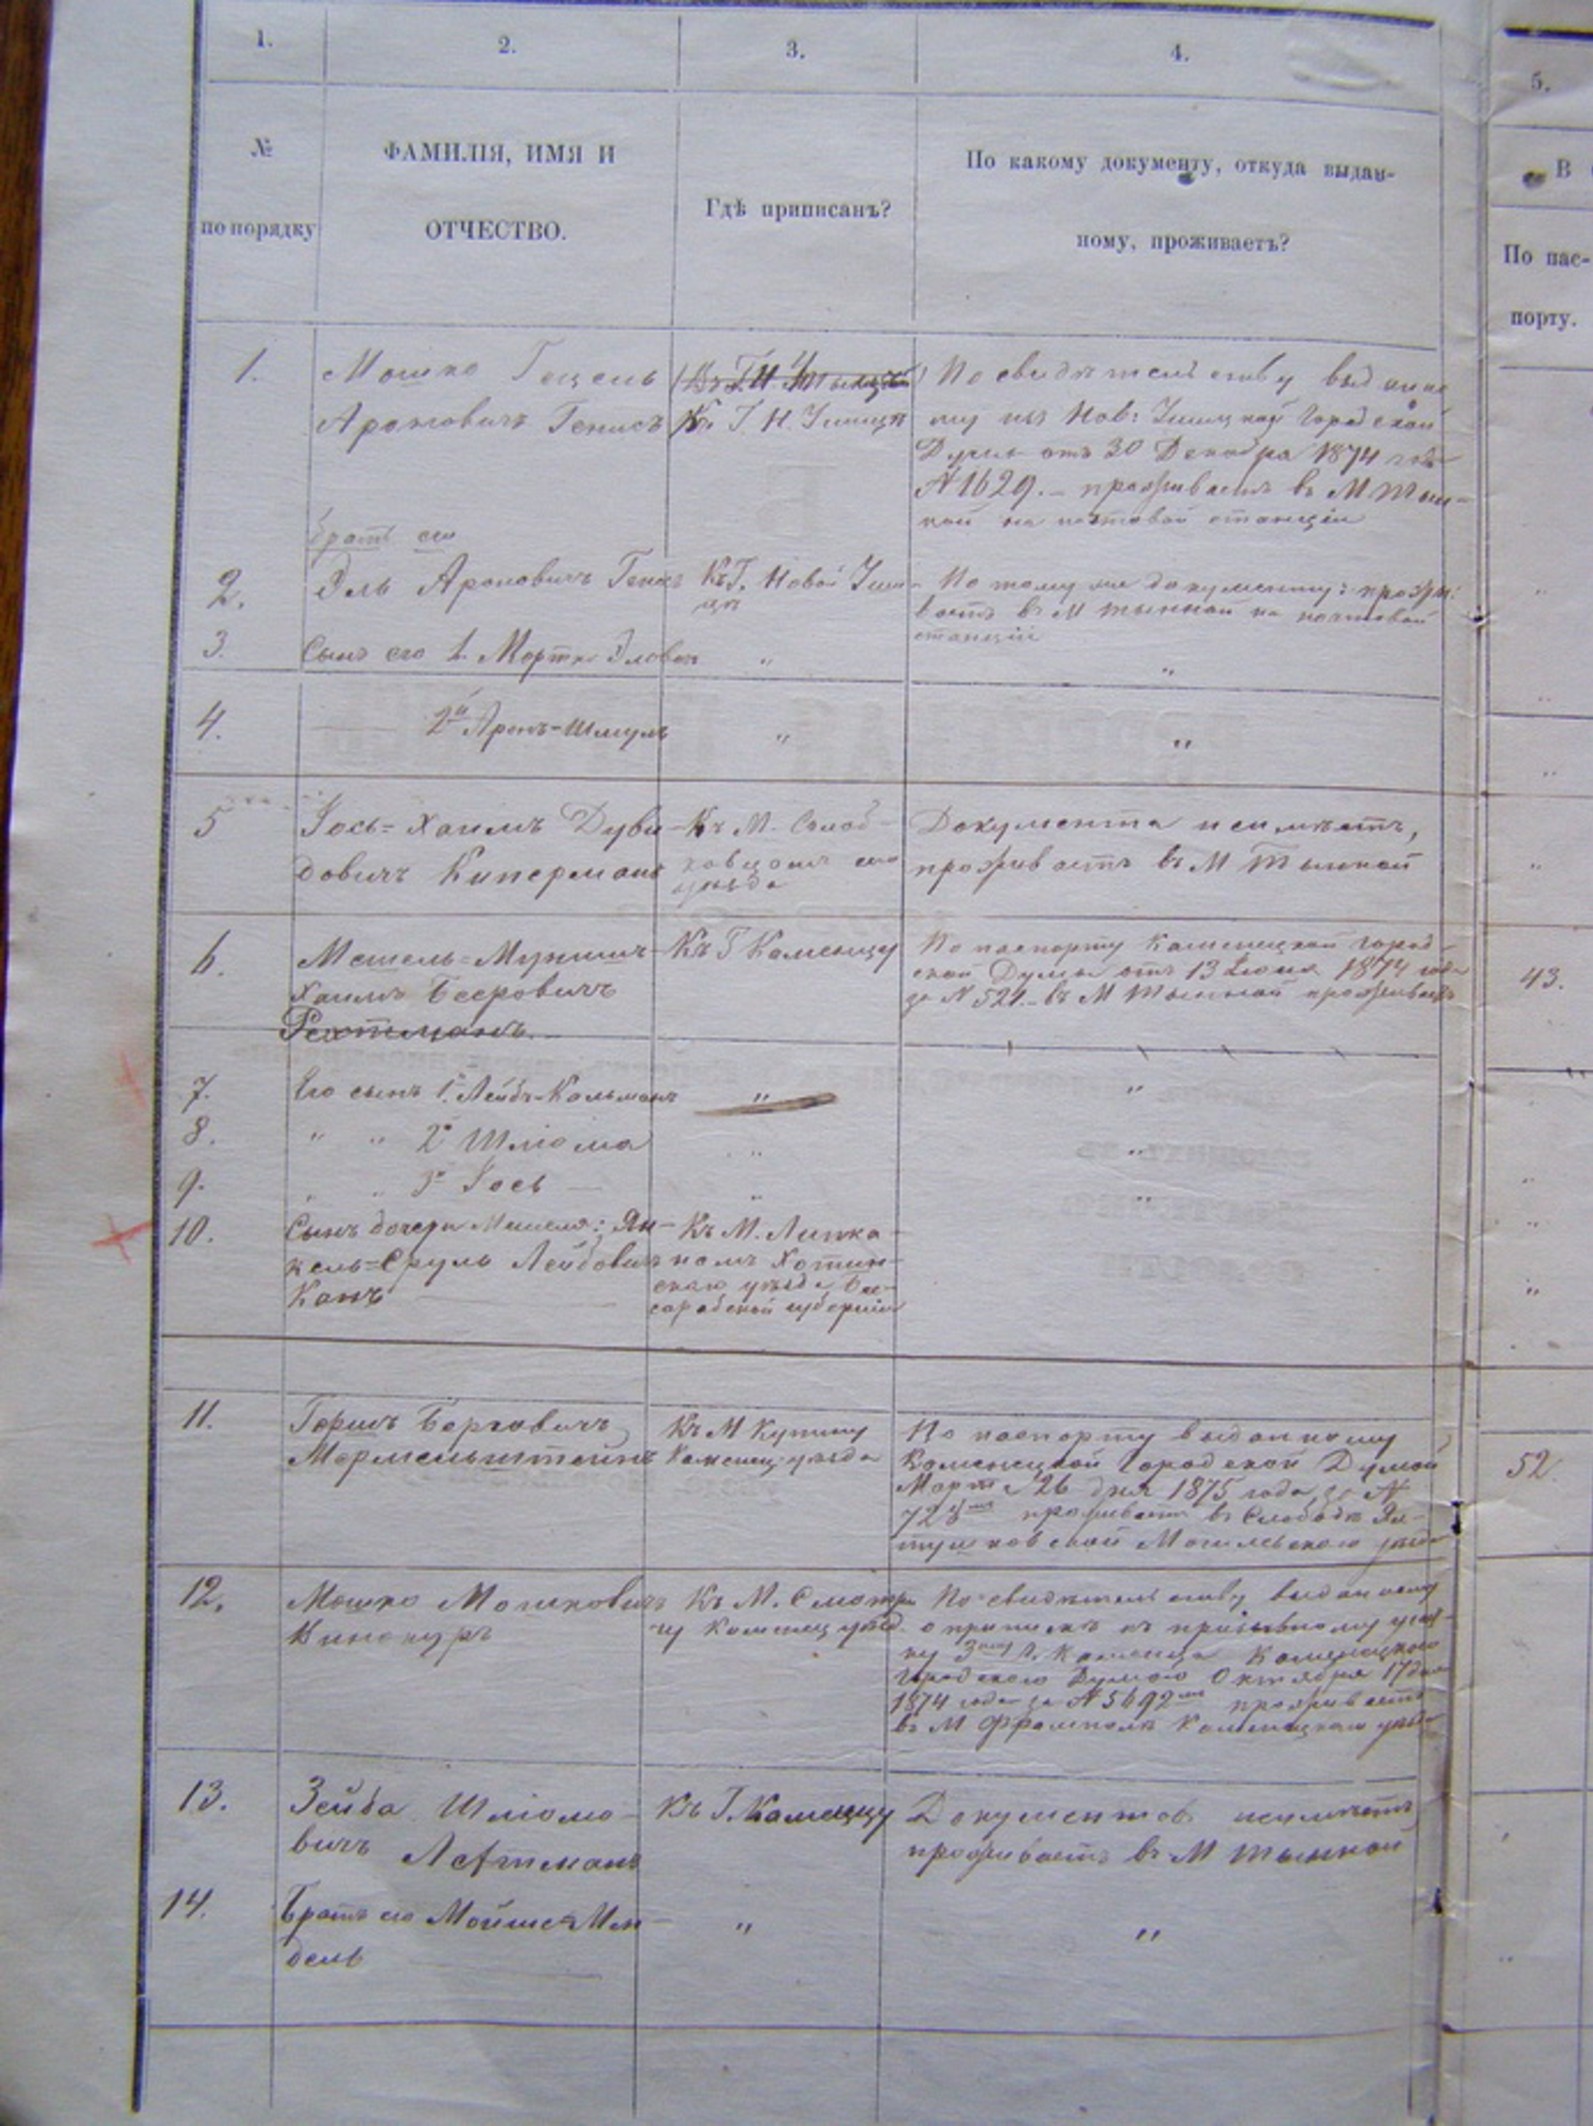 1.
2.
3.
4.
5.
№
по порядку
ФАМИЛІЯ, ИМЯ И
ОТЧЕСТВО.
Гдѣ приписанъ?
По какому документу, откуда выдан-
ному, проживаетъ?
В
По пас-
порту.
1.
Мошко Гецель
Ароновичъ Генисъ
Къ Г. Н. Ушицѣ
По свидѣтельству выданно
му изъ Нов: Ушицкой Городской
Думы отъ 30 Декабря 1874 года
№ 1629. – проживаетъ въ М Тын-
ной на почтовой станціи
Братъ его
2.
Эль Ароновичъ Генисъ
Къ Г. Новой Уши-
цѣ
По тому же документу: прожи:
ваетъ въ М Тынной на почтовой
станціи
3.
Сынъ его 1. Мортко Эловъ
"
"
4.
2й Аронъ-Шмуль
"
"
5
Іось=Хаимъ Дуви-
довичъ Киперманъ
Къ М. Солоб-
ковцамъ сего
уѣзда
Документа неимѣетъ,
проживаетъ въ М Тынной
6.
Мешель=Мунишъ-
Хаимъ Беровичъ
Рехтманъ
Къ Г Каменцу
По паспорту Каменецкой город-
ской Думы отъ 13 Іюня 1874 года
за № 521. въ М Тынной проживаетъ
43.
7.
Его сынъ 1. Лейбъ-Кальманъ
"
"
8.
" " 2й Шліома
"
"
9.
" " 3й Іось
"
"
10.
Сынъ дочери Мешеля: Ян-
кель=Сруль Лейбовичъ
Канъ
Къ М. Липка-
намъ Хотин-
скаго уѣзда Бес-
сарабской губерніи
11.
Гершъ Берковичъ
Мармельштейнъ
Къ М Купину
Каменец. уѣзда
По паспорту выданному
Каменецкой Городской Думой
Марта 26 дня 1875 года за №
728 проживаетъ въ Слободкѣ Ял-
тушковской Могилевскаго уѣзда
52.
12.
Мошко Мошковичъ
Винокуръ
Къ М. Смотри-
чу Каменец уѣзд.
По свидѣтельству выданному
о припискѣ къ призывному учас-
ку 3му г. Каменца Каменецкою
Городскою Думою Октября 17 дня
1874 года за № 5692 проживаетъ
въ М Фрамполѣ Каменецкаго уѣзда
13.
Зейда Шліомо-
вичъ Лехтманъ
Къ Г. Каменцу
Документовъ неимѣетъ
проживаетъ въ М Тынной
14.
Братъ его Мойше=Мен-
дель
"
"